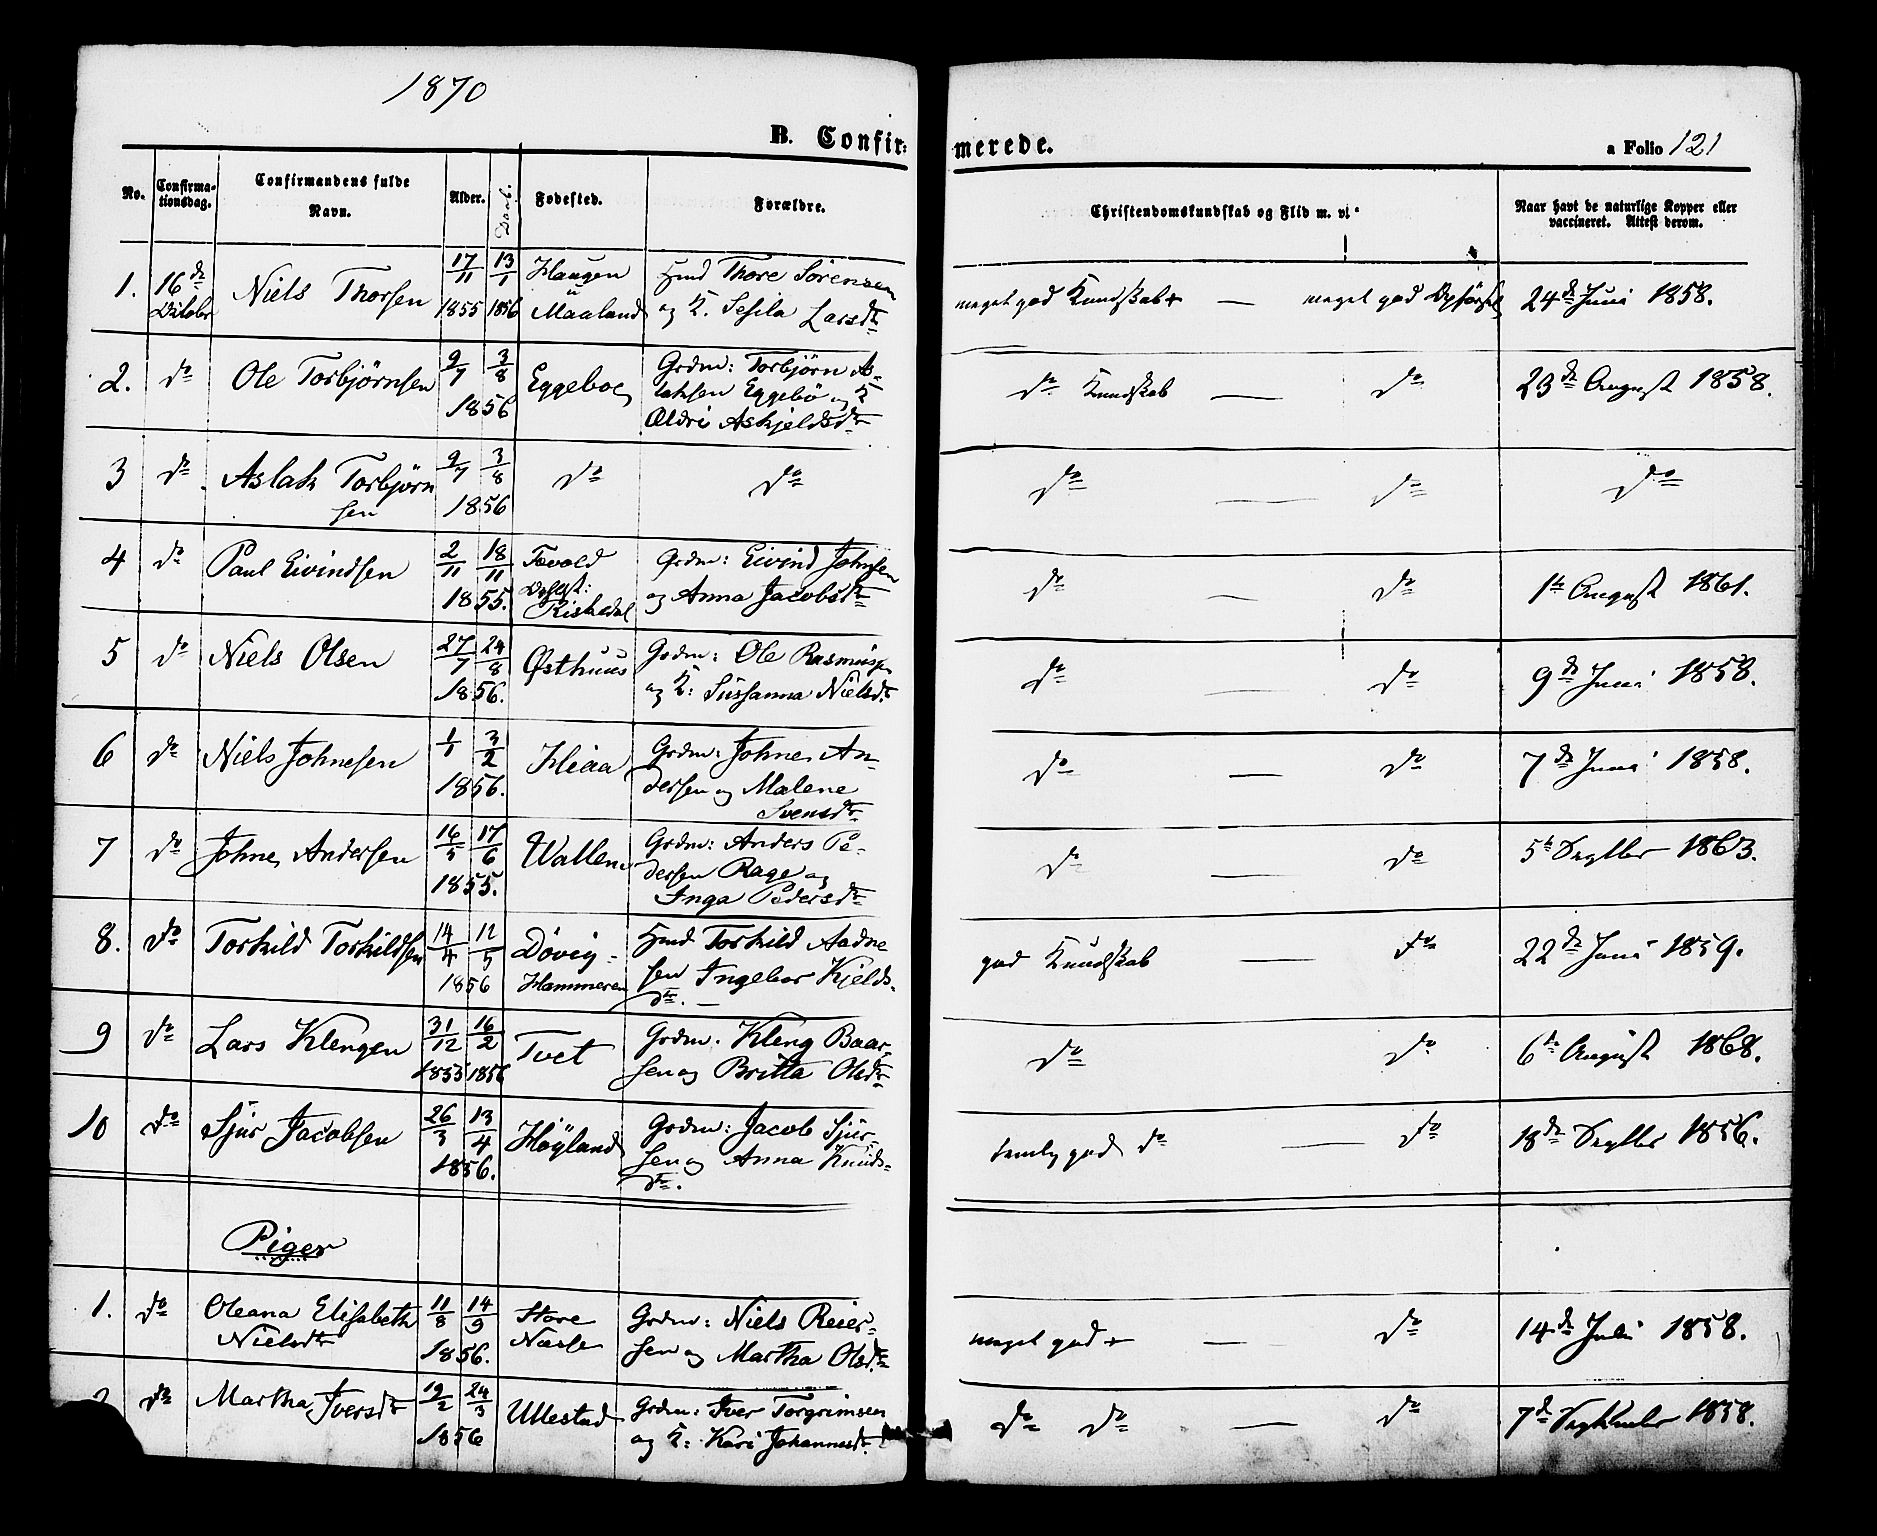 1870
B. Confirmerede.
a Folio 121
No.
Confirmationsdag.
Confirmandens fulde Navn.
Alder.
Daab.
Fødested.
Forældre.
Christendomskundskab og Flid m. v.
Naar havt de naturlige Kopper eller vaccineret. Attest derom.
1. 16de Octobr Niels Thorsen 17/11 1855 13/1 1856 Haugen Maaland Hmd Thore Sörensen og K. Sesila Larsdtr meget god Kundskab — meget god Opførsel 24de Juni 1858.
2. do Ole Torbjørnsen 9/7 3/8 1856 Eggeboe Grdm: Torbjørn Aslaksen Eggebö og K Oldri Askjeldsdtr do Kundskab — do 23de August 1858.
3 do Aslak Torbjørnsen 9/7 3/8 1856 do do do — do do
4 do Paul Eivindsen 2/11 18/11 1855. Tovold Riskedal Grdm: Eivind Johnsen og Anna Jacobsdtr do do 1ste August 1861.
5 do Niels Olsen 27/7 24/8 1856. Østhuus Grdm: Ole Rasmussen og K: Sussanna Nielsdtr do — do 9de Juni 1858.
6 do Niels Johnesen 1/1 3/2 1856. Hiaa Grdm: Johne Andersen og Malene Svensdtr do — do 7de Juni 1858.
7 do Johne Andersen 16/5 17/6 1855. Wallen Grdm: Anders Pedersen Rage og Inga Pedersdtr do — do 5te Septbr 1863.
8. do Torkild Torkildsen 14/4 12/5 1856 Döviг- Hammeren Hmd Torkild Aadnesen Ingebor Kjeldsdtr. — god Kundskab — do 22de Juni 1859.
9 do Lars Klengen 31/12 1855 16/2 1856 Tvet Grdm. Kleng Baarsen og Britta Olsdtr do do 6te August 1868.
10 do Sjur Jacobsen 26/3 13/4 1856. Höyland Grdm: Jacob Sjursen og Anna Knudsdtr. temlig god do — do 18de Septbr 1856.
Piger
1. do Oleana Elisabeth Nielsdtr 11/8 14/9 1856. Store Næsse Grdm: Niels Reiersen og Martha Olsdtr meget god — do 14de Juli 1858.
2 do Martha Iversdtr 19/2 24/3 1856 Ullestad Grdm: Iver Torgrimsen og K: Kari Johannesdtr. do do — do 7de September 1858.